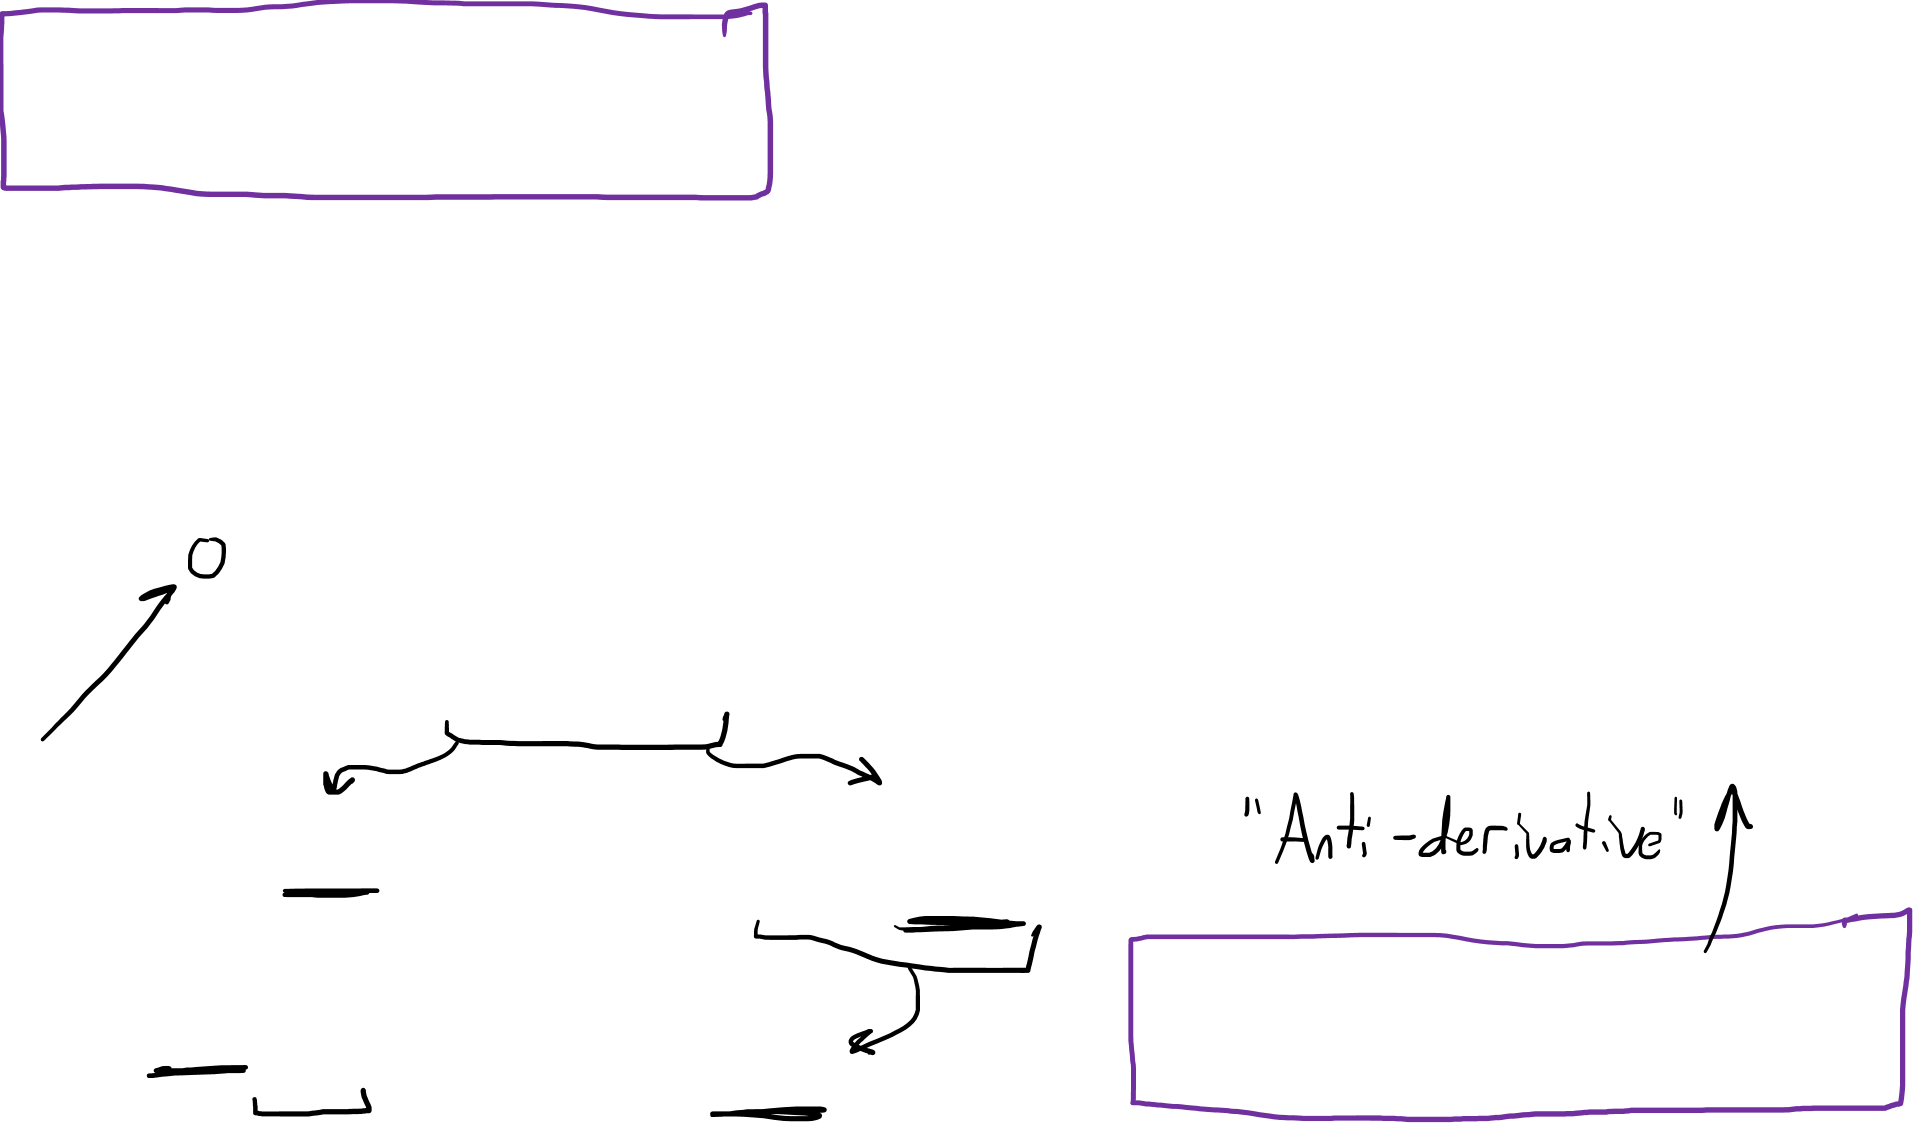 O
"Anti-derivative"